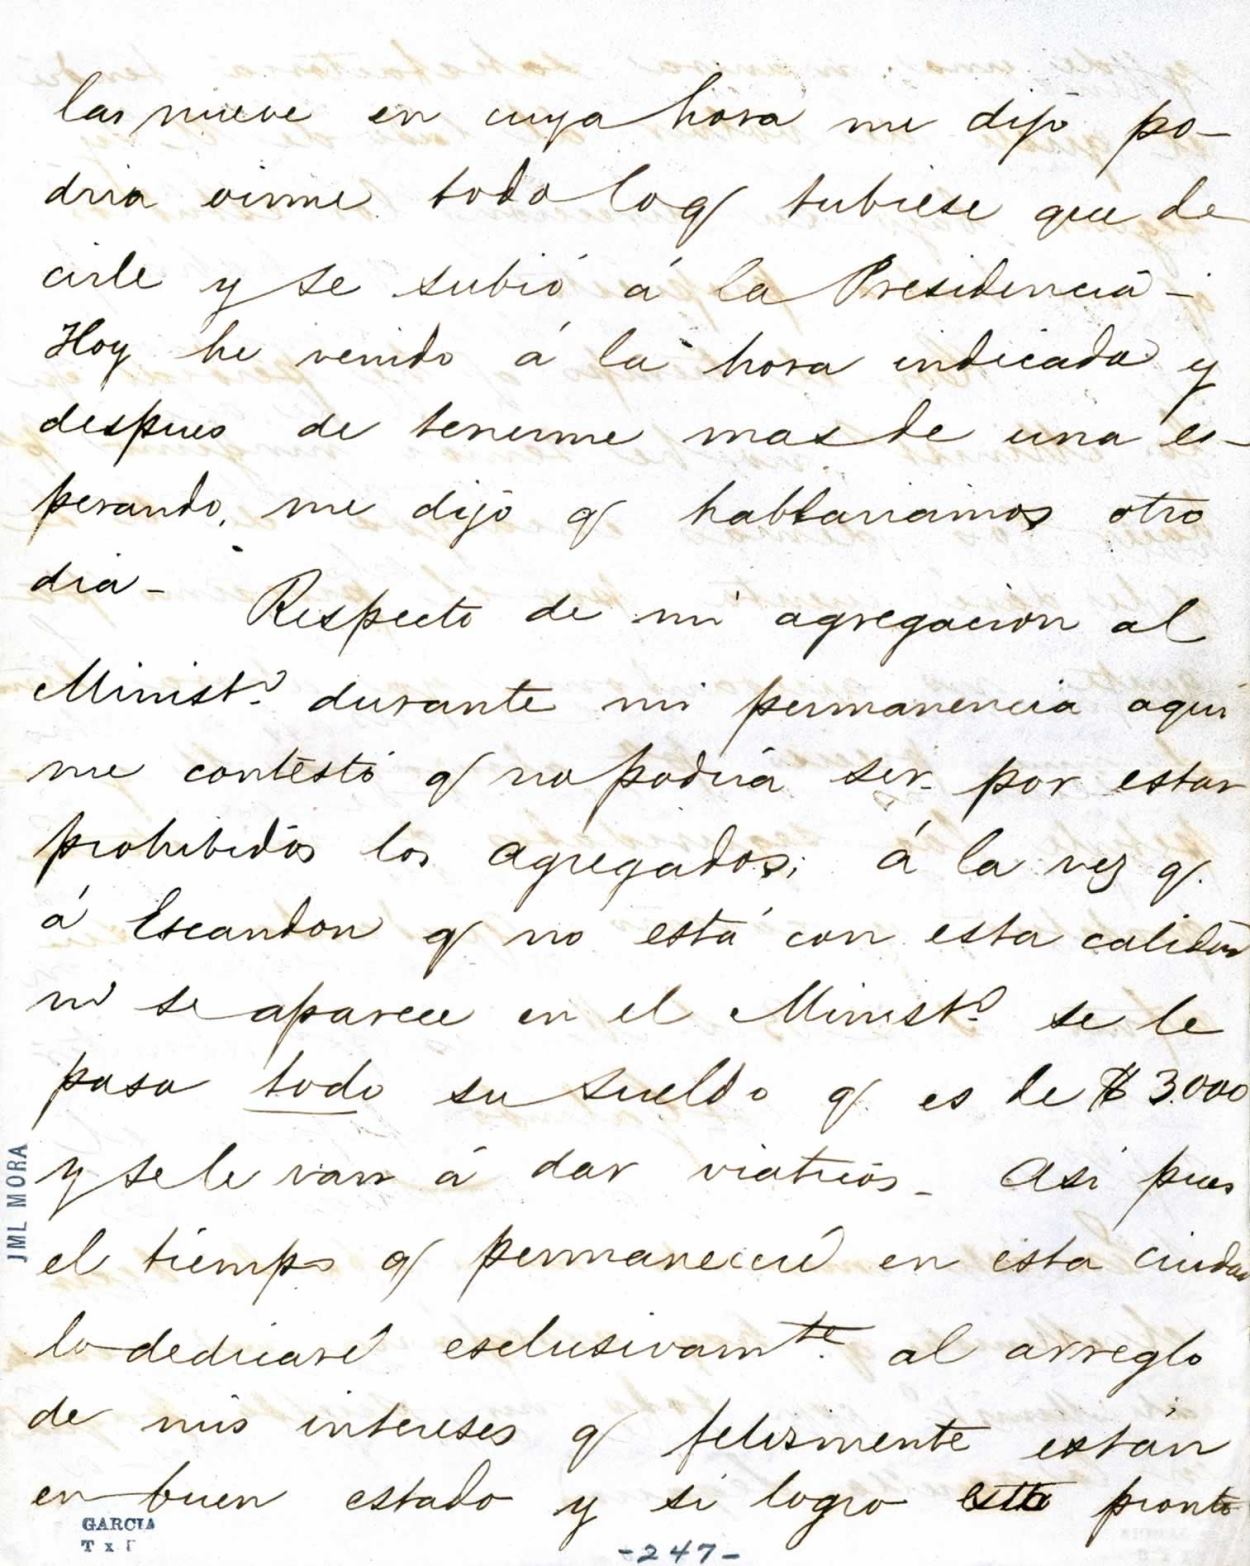 las nueve en cuya hora me dijo po-
dria oirme todo lo q/ tubiese que de
cirle y se subió á la Presidencia -
Hoy he venido á la hora indicada y
despues de tenerme mas de una es-
perando, me dijo q/ hablariamos otro
dia - Respecto de mi agregacion al
Minist.º durante mi permanencia aqui
me contestó q/ no podria ser por estar
prohibidos los agregados; á la vez q/.
á Escandon q/ no está con esta calidad
ni se aparece en el Minist.º se le
pasa todo su sueldo q/. es de $ 3.000
y se le van á dar viaticos - Asi pues
el tiempo q/ permaneceré en esta ciudad
lo dedicaré esclusivam.te al arreglo
de mis intereses q/ felizmente están
en buen estado y si logro esto pronto
JML MORA
GARCIA
-247-